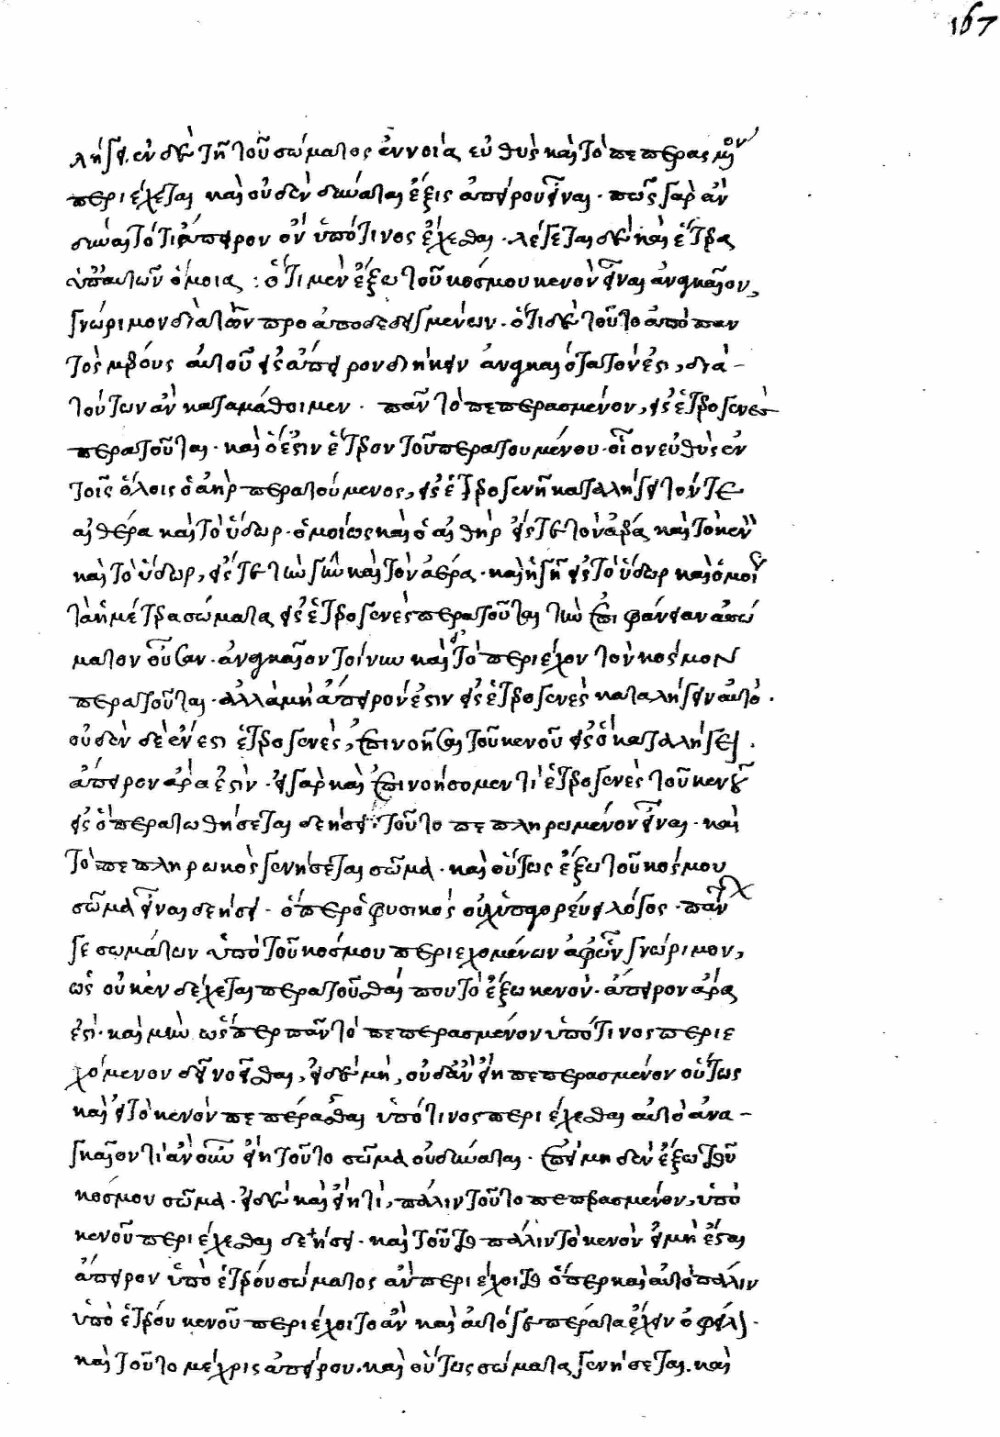 167
λήγει. ἐν δὲ τῇ τοῦ σώματος ἐννοίᾳ εὐθὺς καὶ τὸ πεπερασμένον
περιέχεται καὶ οὐδὲν δύναται ἕξις ἀπείρου εἶναι. πῶς γὰρ ἂν
δύναιτό τι ἄπειρον ὂν ὑπό τινος ἔχεσθαι. λέγεται δὲ καὶ ἕτερα
ὑπ' αὐτῶν ὅμοια: ὅτι μὲν ἔξω τοῦ κόσμου κενὸν εἶναι ἀναγκαῖον,
γνώριμον διὰ τῶν προαποδεδειγμένων. ὅτι δὲ τοῦτο ἀπὸ παν
τὸς μέρους αὐτοῦ εἰς ἄπειρον διήκειν ἀναγκαιότατόν ἐστι, διὰ
τούτων ἂν καταμάθοιμεν. πᾶν τὸ πεπερασμένον, εἰς ἑτερογενὲς
περατοῦται. καὶ ὅ ἐστιν ἕτερον τοῦ περατουμένου. οἷον εὐθὺς ἐν
τοῖς ὅλοις ὁ ἀὴρ περατούμενος, εἰς ἑτερογενῆ καταλήγει τόν τε
αἰθέρα καὶ τὸ ὕδωρ. ὁμοίως καὶ ὁ αἰθὴρ εἴς τε τὸν ἀέρα καὶ τὸ κενόν
καὶ τὸ ὕδωρ, εἴς τε τὴν γῆν καὶ τὸν ἀέρα. καὶ ἡ γῆ εἰς τὸ ὕδωρ καὶ ὁμοίως
τὰ ἡμέτερα σώματα εἰς ἑτερογενὲς περατοῦται τὴν ἐπιφάνειαν ἀσώ
ματον οὖσαν. ἀναγκαῖον τοίνυν καὶ εἰ τὸ περιέχον τὸν κόσμον
περατοῦται. ἀλλὰ μὴ ἄπειρόν ἐστιν εἰς ἑτερογενὲς καταλήγειν αὐτό.
οὐδὲν δὲ ἔνεστι ἑτερογενὲς, ἐπινοῆσαι τοῦ κενοῦ εἰς ὃ καταλήγει.
ἄπειρον ἄρα ἐστίν. εἰ γὰρ καὶ ἐπινοήσομεν τι ἑτερογενὲς τοῦ κενοῦ
εἰς ὃ περατωθήσεται δεήσει τοῦτο πεπληρωμένον εἶναι. καὶ
τὸ πεπληρωκὸς γενήσεται σῶμα. καὶ οὕτως ἔξω τοῦ κόσμου
σῶμα εἶναι δεήσει. ὅπερ ὁ φυσικὸς οὐχ ὑπαγορεύει λόγος. πάντων
γε σωμάτων ὑπὸ τοῦ κόσμου περιεχομένων ἀφ' ὧν γνώριμον,
ὡς οὐκ ἐνδέχεται περατοῦσθαί που τὸ ἔξω κενόν. ἄπειρον ἄρα
ἐστί. καὶ μὴν ὥσπερ πᾶν τὸ πεπερασμένον ὑπό τινος περιε
χόμενον δεῖ νοεῖσθαι, εἰ δὲ μή, οὐδ' ἂν εἴη πεπερασμένον οὕτως
καὶ εἰ τὸ κενὸν πεπέρασται ὑπό τινος περιέχεσθαι αὐτὸ ἀνα
γκαῖον τί ἂν οὖν εἴη τοῦτο σῶμα οὐ δύναται. ἐπεὶ μηδὲν ἔξω τοῦ
κόσμου σῶμα. εἰ δὲ καὶ εἴη τι, πάλιν τοῦτο πεπερασμένον, ὑπὸ
κενοῦ περιέχεσθαι δεήσει. καὶ τοῦτο πάλιν τὸ κενὸν εἰ μὴ ἔσται
ἄπειρον ὑπὸ ἑτέρου σώματος ἂν περιέχοιτο ὅπερ καὶ αὐτὸ πάλιν
ὑπὸ ἑτέρου κενοῦ περιέχοιτο ἂν καὶ αὐτό γε πέρατα ἔχειν ὀφείλει.
καὶ τοῦτο μέχρις ἀπείρου. καὶ οὕτως σώματα γενήσεται. καὶ